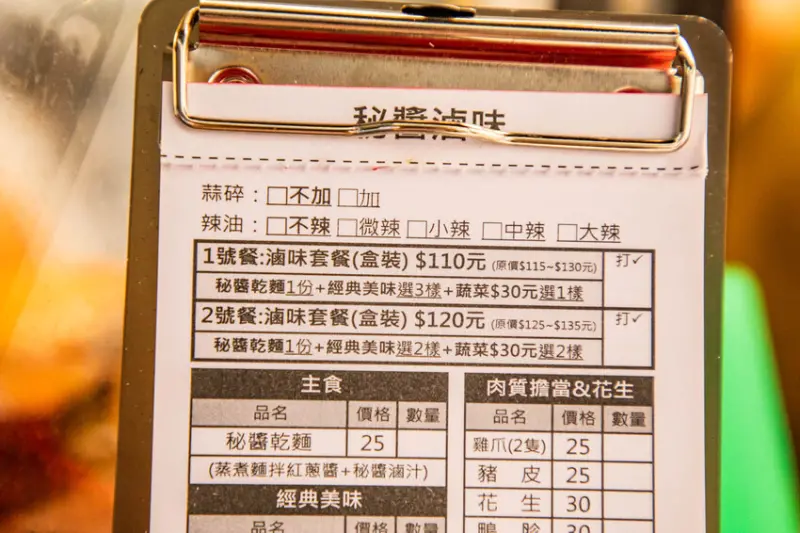 秘醬滷味
蒜碎：□不加 □加
辣油：□不辣 □微辣 □小辣 □中辣 □大辣
1號餐:滷味套餐(盒裝) $110元 (原價$115~$130元) 打✓
秘醬乾麵1份+經典美味選3樣+蔬菜$30元選1樣
2號餐:滷味套餐(盒裝) $120元 (原價$125~$135元) 打✓
秘醬乾麵1份+經典美味選2樣+蔬菜$30元選2樣
主食
品名 價格 數量
秘醬乾麵 25
(蒸煮麵拌紅蔥醬+秘醬滷汁)
經典美味
品名 價格 數量
肉質擔當&花生
品名 價格 數量
雞爪(2隻) 25
豬 皮 25
花 生 30
鴨 胗 30